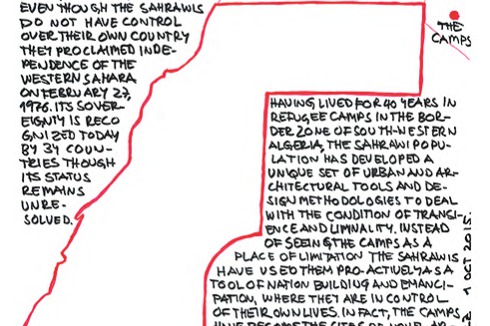 EVEN THOUGH THE SAHRAWIS
DO NOT HAVE CONTROL
OVER THEIR OWN COUNTRY
THEY PROCLAIMED INDE-
PENDENCE OF THE
WESTERN SAHARA
ON FEBRUARY 27,
1976. ITS SOVER-
EIGNTY IS RECO
GNIZED TODAY
BY 34 COUN-
TRIES THOUGH
ITS STATUS
REMAINS
UNRE-
SOLVED.
THE
CAMPS
HAVING, LIVED FOR 40 YEARS IN
REFUGEE CAMPS IN THE BOR-
DER ZONE OF SOUTH-WESTERN
ALGERIA, THE SAHRAWI POPU-
LATION HAS DEVELOPED A
UNIQUE SET OF URBAN AND AR-
CHITECTURAL TOOLS AND DE-
SIGN METHODOLOGIES TO DEAL
WITH THE CONDITION OF TRANSI-
ENCE AND LIMINALITY. INSTEAD
OF SEEING THE CAMPS AS A
PLACE OF LIMITATION THE SAHRAWIS
HAVE USED THEM PRO-ACTIVELY AS A
TOOL OF NATION BUILDING AND EMANCI-
PATION, WHERE THEY ARE IN CONTROL
OF THEIR OWN LIVES. IN FACT, THE CAMPS
HAVE BECOME THE SITES OF
1 OCT 2015.